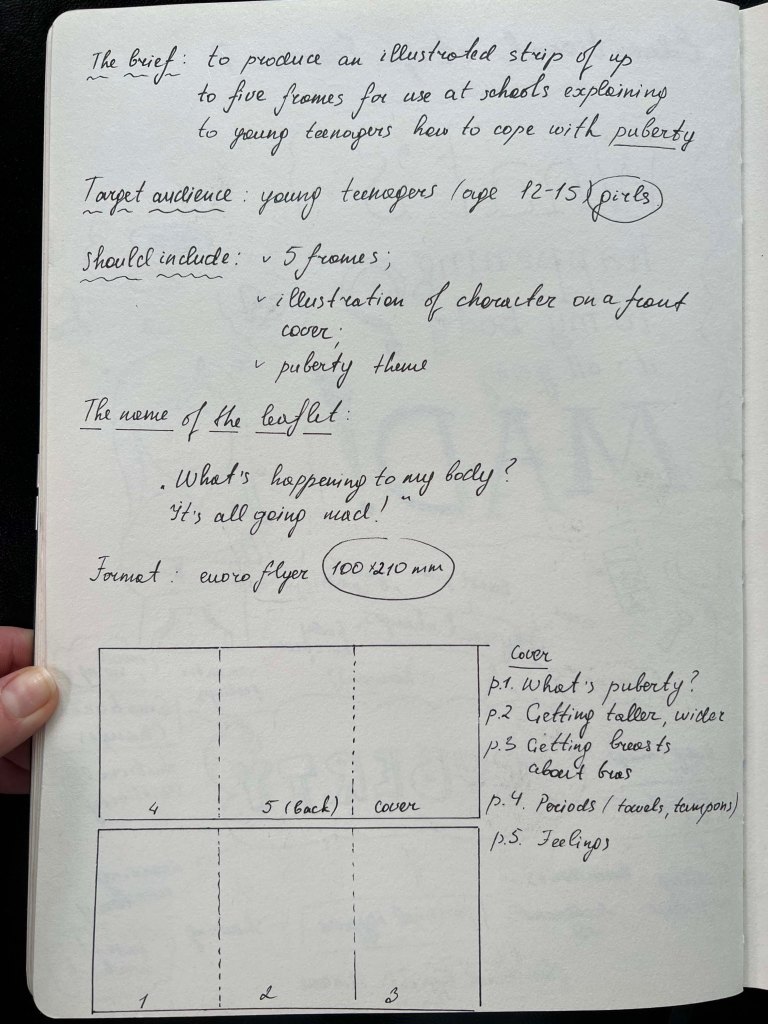 The brief: to produce an illustrated strip of up
to five frames for use at schools explaining
to young teenagers how to cope with puberty
Target audience: young teenagers (age 12-15) girls
should include: ✓ 5 frames;
✓ illustration of character on a front
cover;
✓ puberty theme
The name of the leaflet:
„What's happening to my body?
It's all going mad!"
Format: euro flyer 100x210 mm
4 5 (back) cover
1 2 3
Cover
p.1. What's puberty?
p.2 Getting taller, wider
p.3 Getting breasts
about bras
p.4. Periods (towels, tampons)
p.5. Feelings